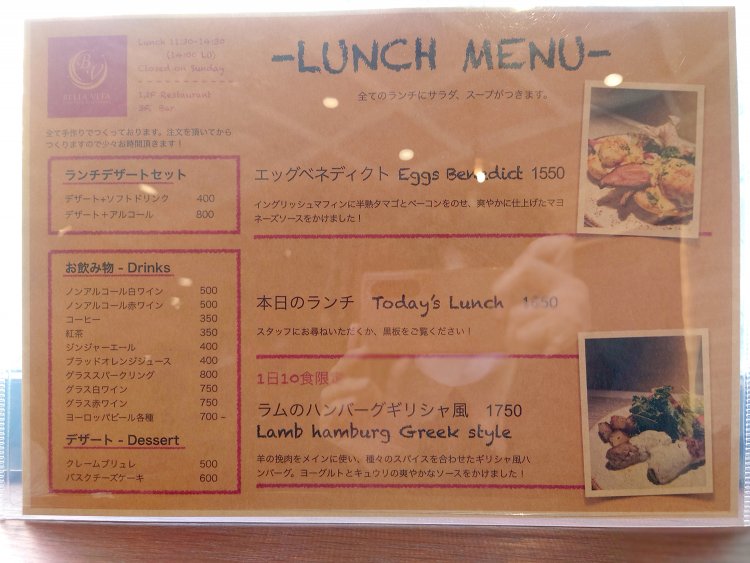 BV
BELLA VITA
Lunch 11:30-14:30
(14:00 LO)
Closed on Sunday
1,2F Restaurant
3F Bar
-LUNCH MENU-
全てのランチにサラダ、スープがつきます。
全て手作りでつくっております。注文を頂いてから
つくりますので少々お時間頂きます！
ランチデザートセット
デザート+ソフトドリンク 400
デザート＋アルコール 800
お飲み物 - Drinks
ノンアルコール白ワイン 500
ノンアルコール赤ワイン 500
コーヒー 350
紅茶 350
ジンジャーエール 400
ブラッドオレンジジュース 400
グラススパークリング 800
グラス白ワイン 750
グラス赤ワイン 750
ヨーロッパビール各種 700 ~
デザート - Dessert
クレームブリュレ 500
バスクチーズケーキ 600
エッグベネディクト Eggs Benedict 1550
イングリッシュマフィンに半熟タマゴとベーコンをのせ、爽やかに仕上げたマヨ
ネーズソースをかけました！
本日のランチ Today's Lunch
スタッフにお尋ねいただくか、黒板をご覧ください！
1日10食限定
ラムのハンバーグギリシャ風 1750
Lamb hamburg Greek style
羊の挽肉をメインに使い、種々のスパイスを合わせたギリシャ風ハ
ンバーグ。ヨーグルトとキュウリの爽やかなソースをかけました！